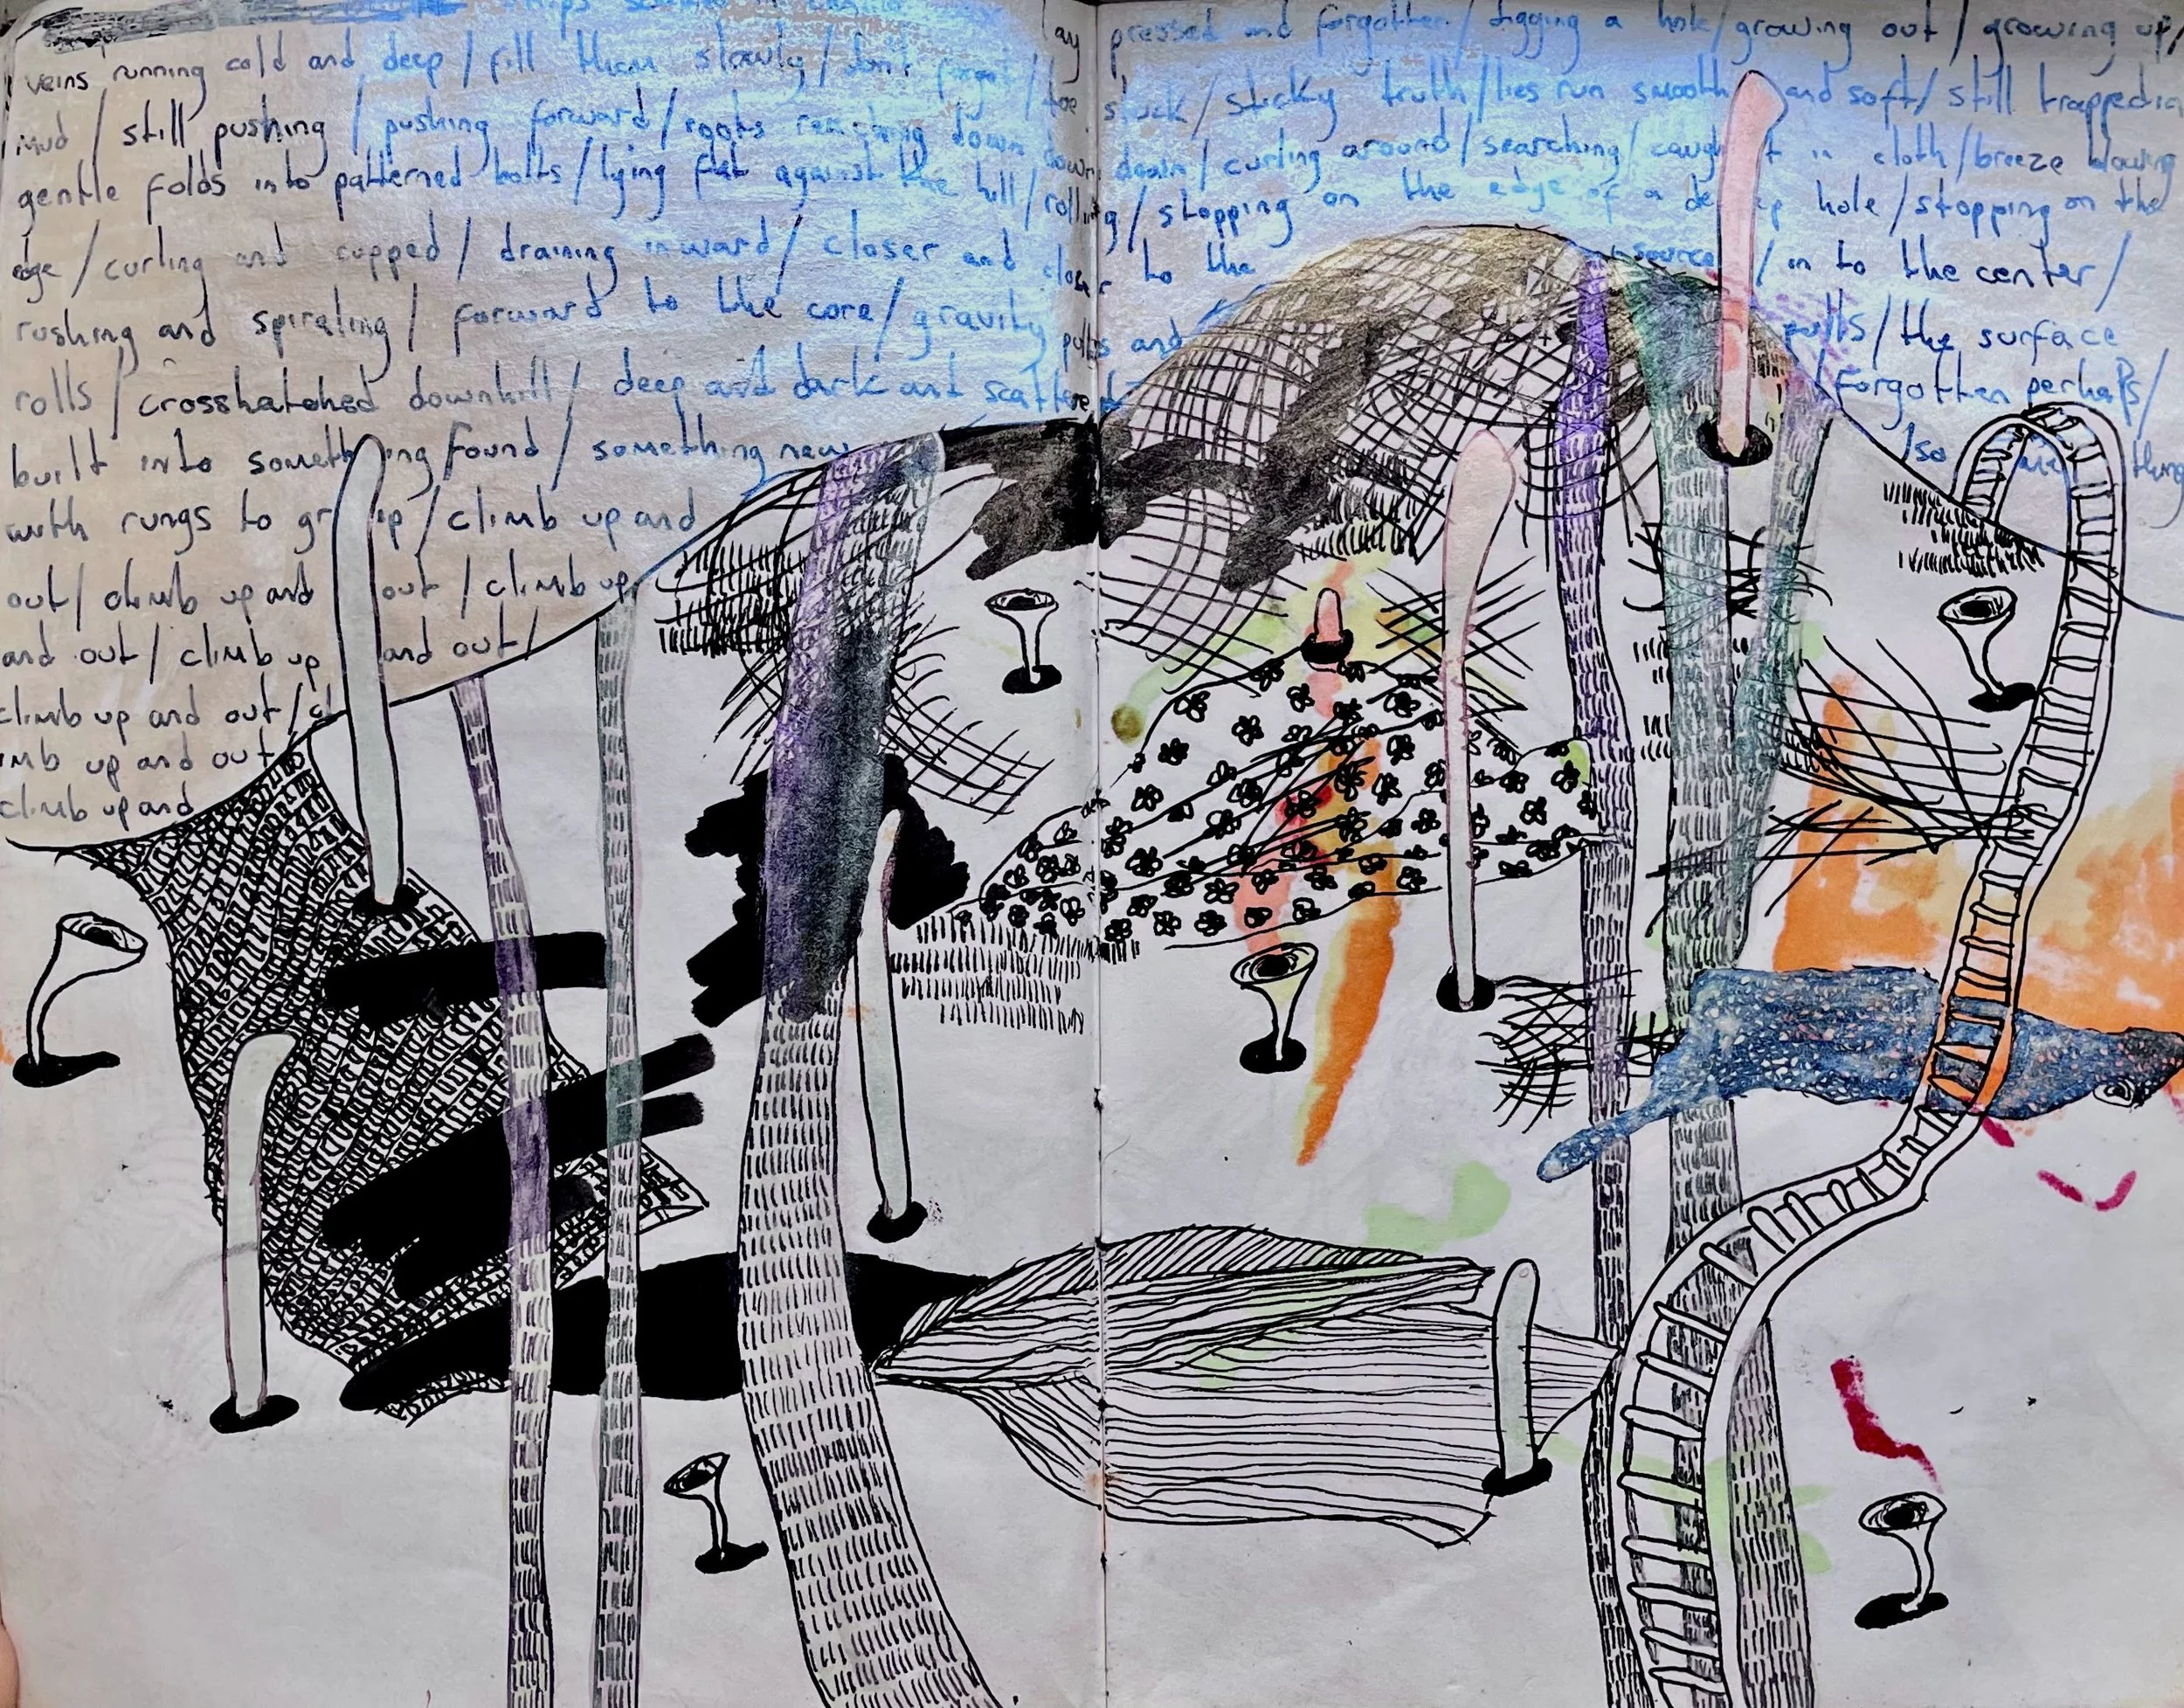 veins running cold and deep / fill them slowly / don't forget / toe pressed and forgotten / digging a hole / growing out / growing up /
mud / still pushing / pushing forward / roots reaching down stuck / sticky truth / lies run smooth and soft / still trapped in
gentle folds into patterned bolts / lying flat against the hill / rolling down down / curling around / searching / caught in cloth / breeze blowing
edge / curling and cupped / draining inward / closer and closer to the / stopping on the edge of a deep hole / stopping on the
rushing and spiraling / forward to the core / gravity pulls and source / in to the center /
rolls / crosshatched downhill / deep and dark and scattered pulls / the surface
built into something found / something new forgotten perhaps /
with rungs to grip / climb up and / so
out / climb up and out / climb up
and out / climb up and out /
climb up and out / cl
imb up and out
climb up and